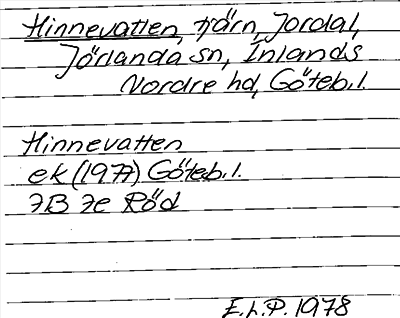 Hinnevatten, tjärn, Jordal,
Jörlanda sn, Inlands
Nordre hd, Göteb. l.
Hinnevatten
ek (1977) Göteb. l.
7B 7e Röd
E.L.P. 1978